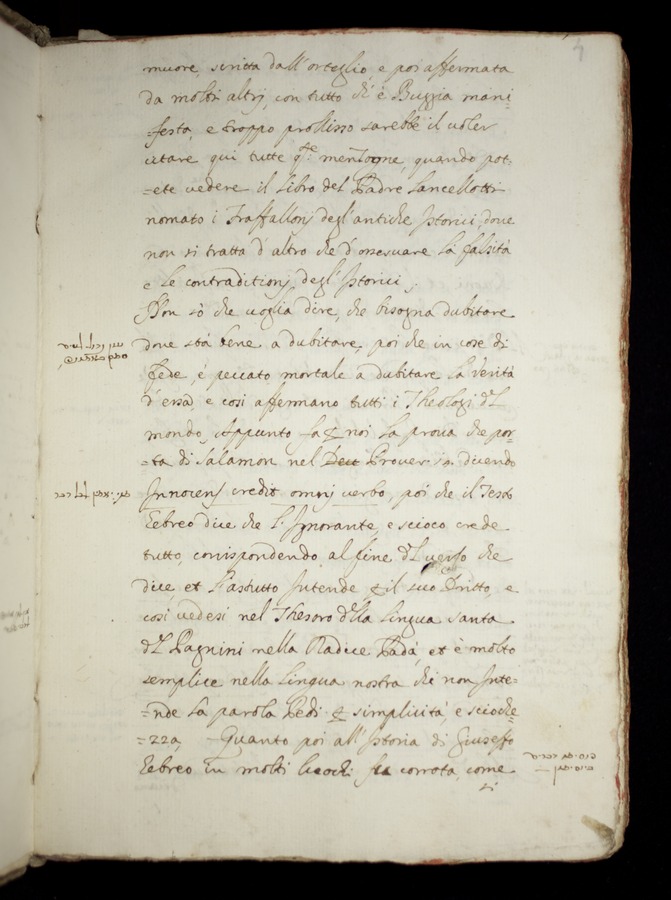 4
muore, scritta dall'orteglio, e poi affermata
da molti altrj, con tutto ch'è Buggia mani-
festa, e troppo prolisso sarebbe il uoler
citare qui tutte q.te menzogne, quando pot-
-ete uedere il libro del Padre Lancellotti
nomato i Fraffallonj degl'antichi Istorici, doue
non si tratta d'altro che d'osseruare la falsità
e le contraditionj degl'Istorici.
Non sò che uoglia dire, che bisogna dubitare
doue stà bene a dubitare, poi che in cose di
fede, è peccato mortale a dubitare la uerità
d'essa, e così affermano tutti i Theologi del
mondo, Appunto fa p noi la proua che por-
-ta di Salamon nel Prouer: 14. dicendo
Innocens credit omnj uerbo, poi che il Testo
Eebreo dice che l'Ignorante, e scioco crede
tutto, corrispondendo al fine del uerso che
dice, et l'astutto Intende p il suo Dritto, e
così uedesi nel Thesoro della lingua santa
del Pagnini nella Radice Padà, et è molto
semplice nella lingua nostra chi non Inte-
-nde la parola Pedi p simplicità, e scioche-
-zza, Quanto poi all'Istoria di Giuseffo
Eebreo in molti luochi fu corrota, come
si